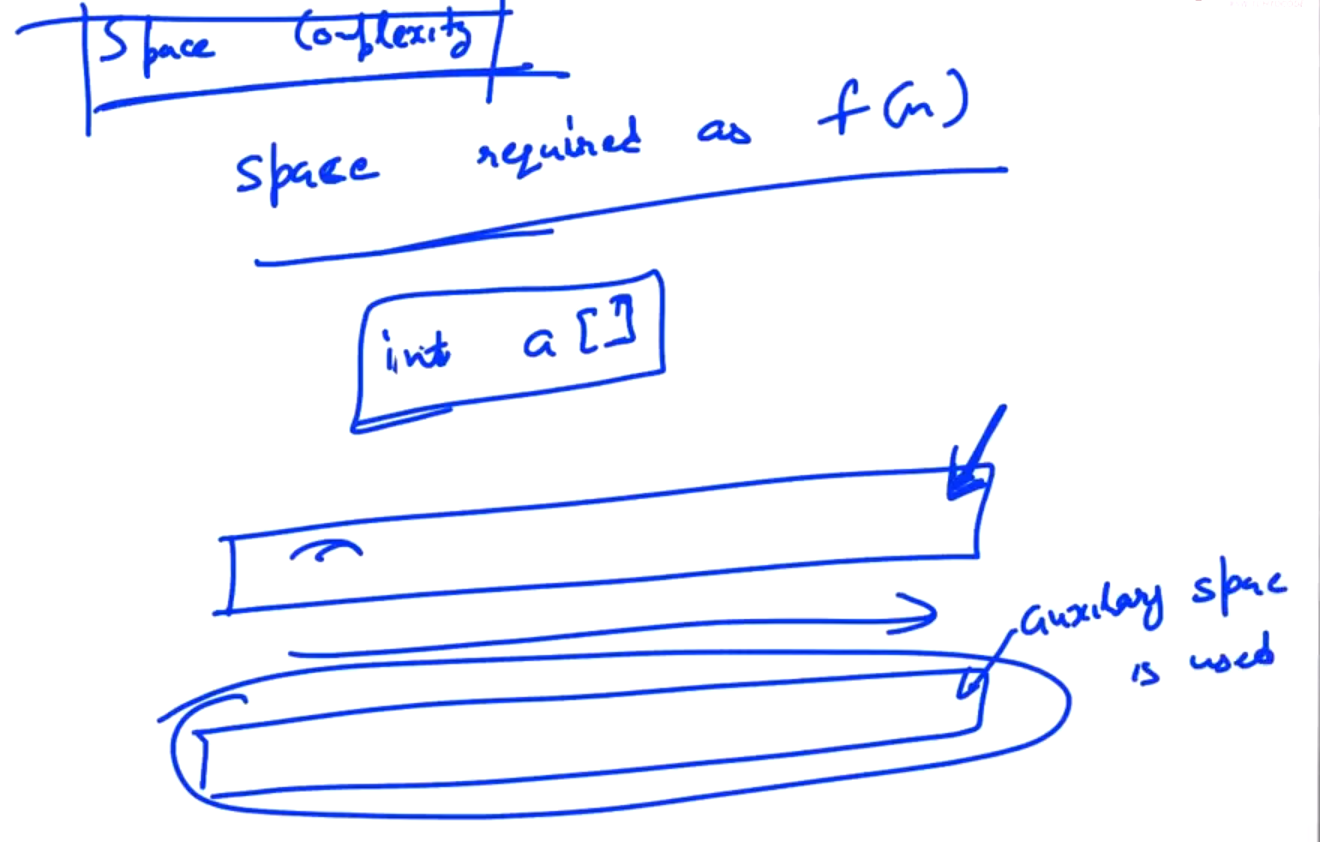 Space Complexity
Space required as f(n)
int a[]
auxilary space
is used